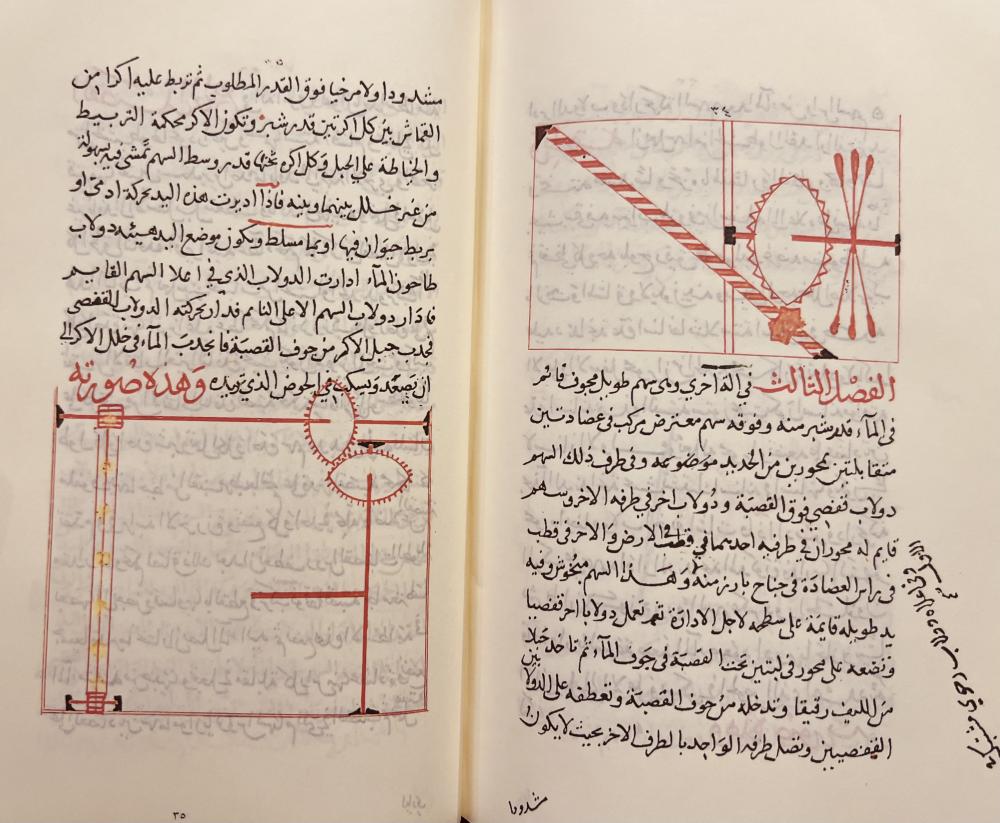 ٣٤
الفصل الثالث في آلة اخرى وهي سهم طويل مجوف قائم
في المآء قدر شبر منه وفوقه سهم معترض مركب في عضادتين
متقابلتين بمحورين من الحديد موضوعه وفي طرف ذلك السهم
دولاب قفصي فوق القصبة ودولاب اخر في طرفه الاخر وسهم
قايم له محوران في طرفيه احدهما في قطب في الارض والاخر في قطب
في راس العضادة في جناح بارز منه وهذا السهم منخوش وفيه
يد طويله قايمة على سطحه لاجل الادارة ثم تعمل دولابا اخر قفصيا
وتضعه على محور في لبنتين تحت القصبة في جوف المآء ثم تاخذ حبلا
من الليف رقيقا وتدخله من جوف القصبة وتعطفه على الدولابين
القفصيين وتصل طرفه الواحد بالطرف الاخر بحيث لا يكون
مشدودا
مشدودا ولا مرخيا فوق القدر المطلوب ثم تربط عليه اكرا من
القماش بين كل اكرتين قدر شبر وتكون الاكر محكمة التربيط
والخياطة علي الحبل وكل اكره ثخنها قدر وسط السهم تمشي فيه بسهولة
من غير خلل بينهما وبينه فاذا اديرت هذه اليد بحركة ادمي او
بربط حيوان فيها او بما مسلط ويكون موضع اليد هيئة دولاب
طاحون المآء ادارت الدولاب الذي في اعلا السهم القايم
فادار دولاب السهم الاعلى النائم فدار بحركته الدولاب القفصي
فجذب حبل الاكر من جوف القصبة فانجذب المآء في خلل الاكر الى
ان يصعد ويسكب في الحوض الذي تريده وهذه صورته
٣٥